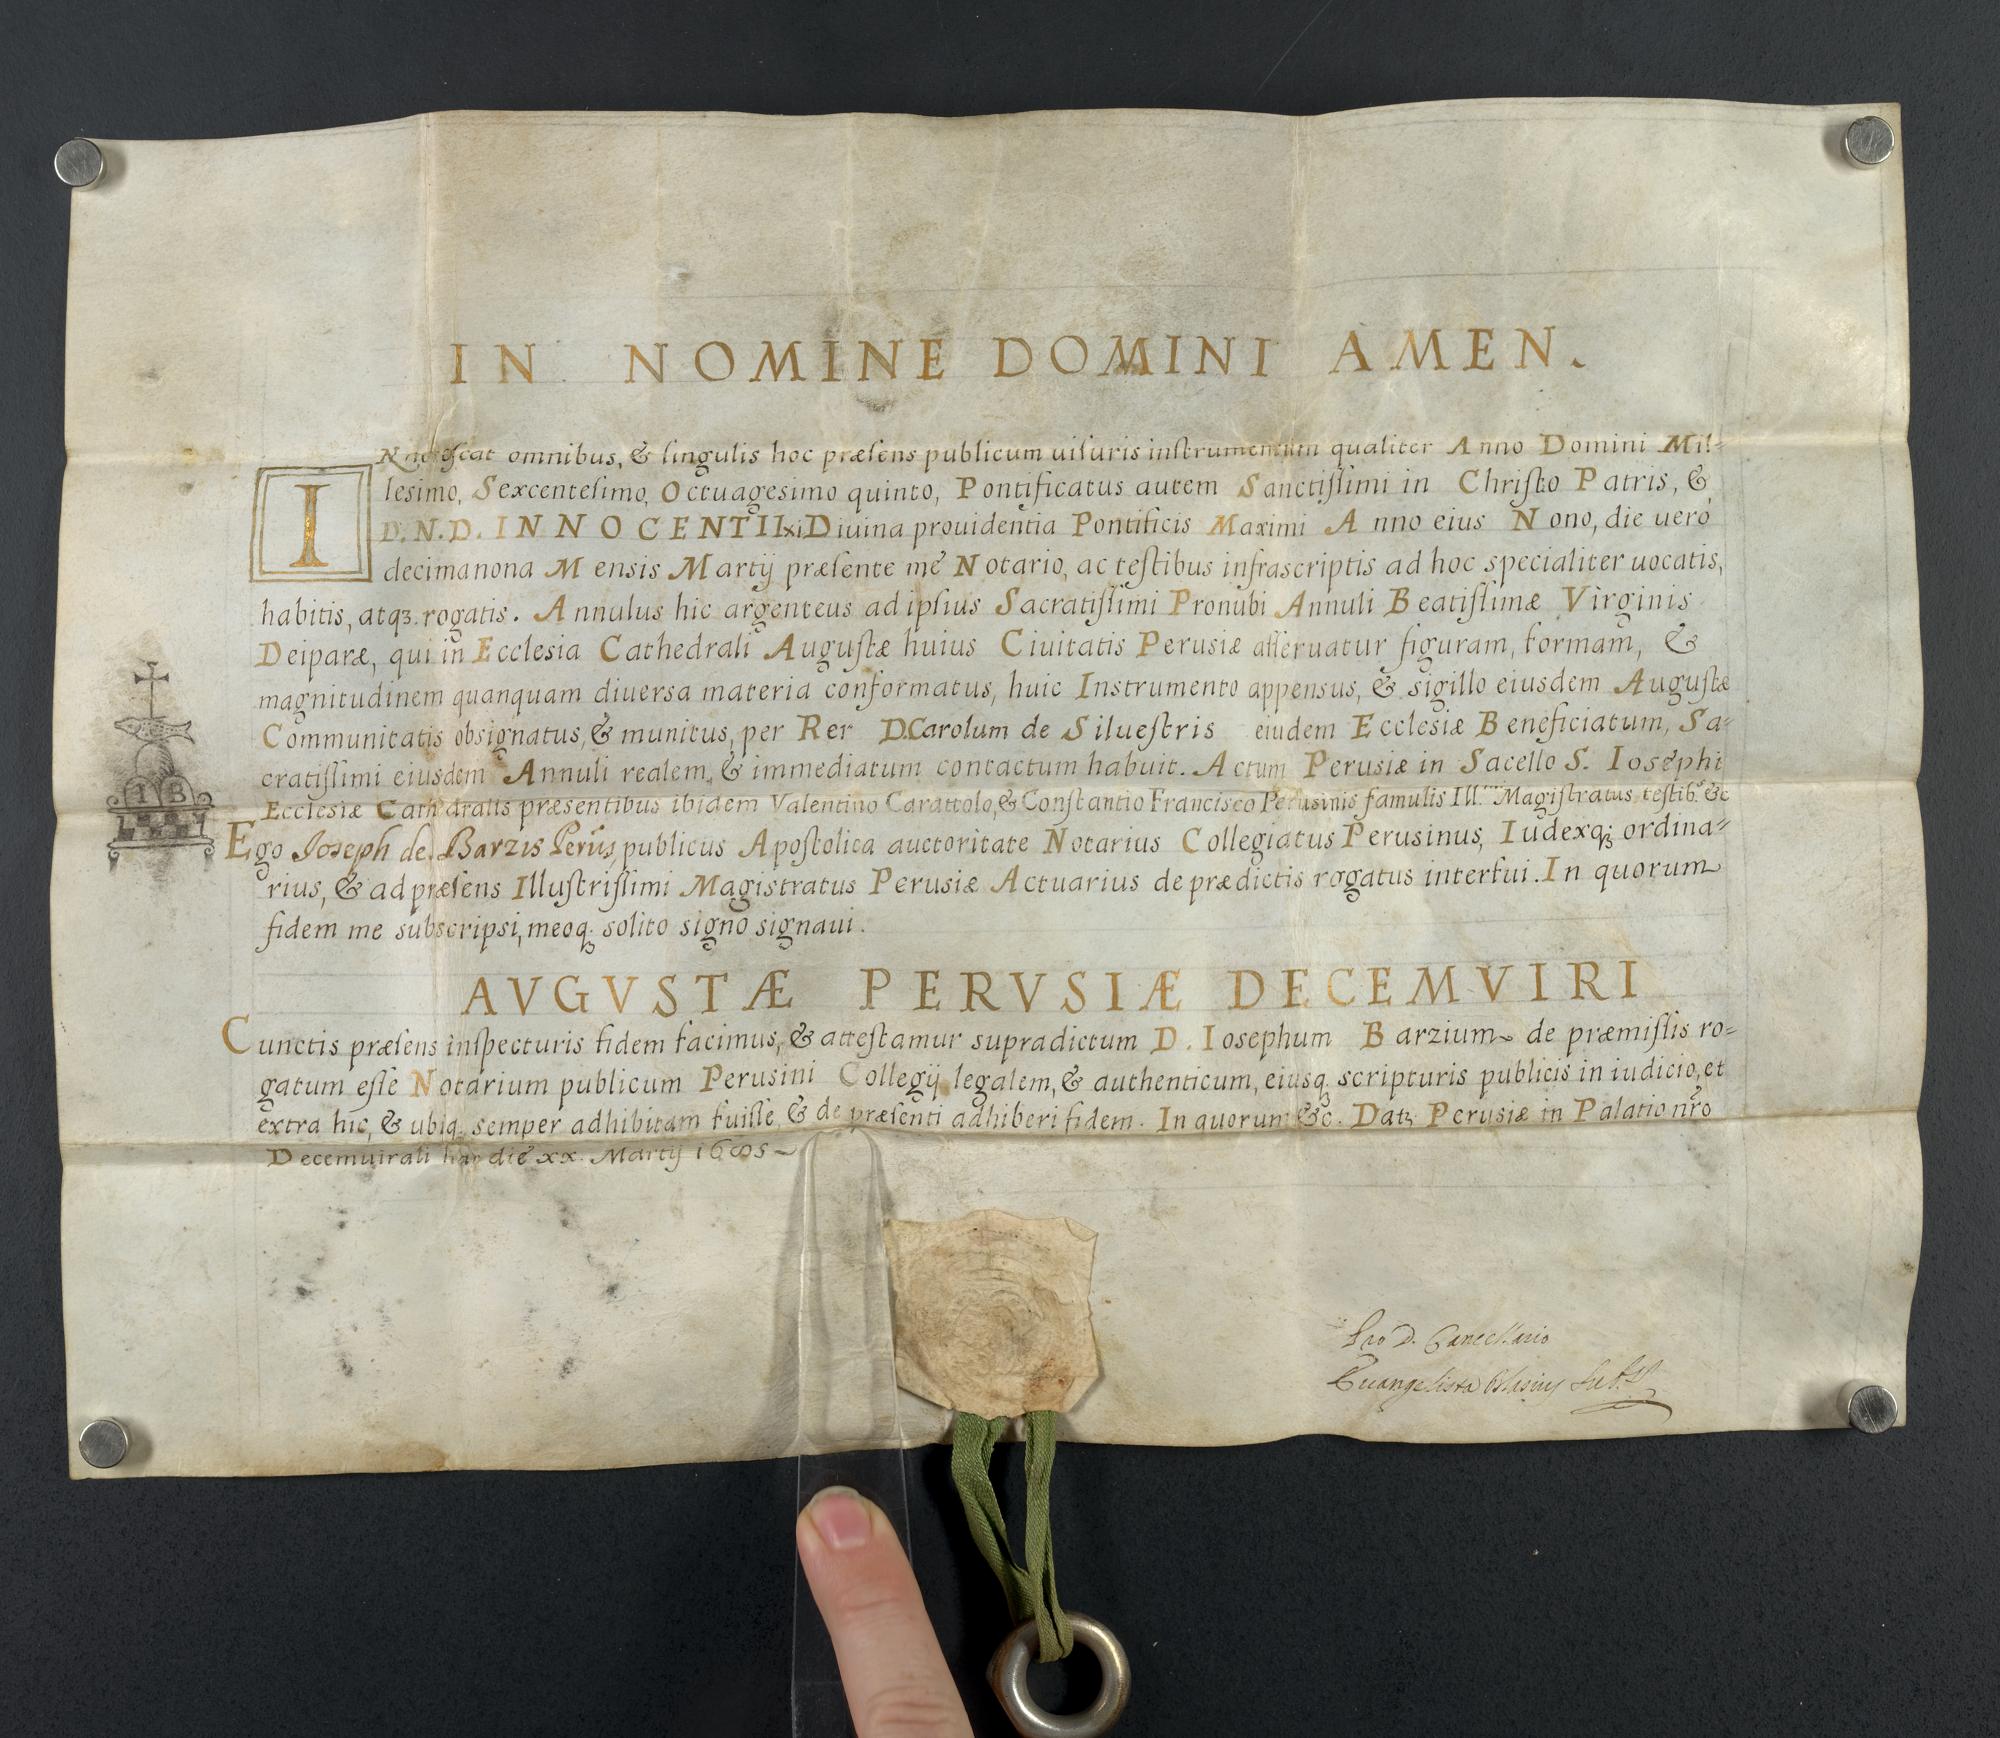 IN NOMINE DOMINI AMEN.
INnotescat omnibus, & singulis hoc præsens publicum uisuris instrumentum qualiter Anno Domini Mil-
lesimo, Sexcentesimo, Octuagesimo quinto, Pontificatus autem Sanctissimi in Christo Patris, &
D.N.D. INNOCENTII xi Diuina prouidentia Pontificis Maximi Anno eius Nono, die uero
decimanona Mensis Martij præsente me Notario, ac testibus infrascriptis ad hoc specialiter uocatis,
habitis, atqꝫ rogatis. Annulus hic argenteus ad ipsius Sacratissimi Pronubi Annuli Beatissimæ Virginis
Deiparæ, qui in Ecclesia Cathedrali Augustæ huius Ciuitatis Perusiæ asseruatur figuram, formam, &
magnitudinem quanquam diuersa materia conformatus, huic Instrumento appensus, & sigillo eiusdem Augustæ
Communitatis obsignatus, & munitus, per Rer D. Carolum de Siluestris eiudem Ecclesiæ Beneficiatum, Sa-
cratissimi eiusdem Annuli realem, & immediatum contactum habuit. Actum Perusiæ in Sacello S. Iosephi
Ecclesiæ Cathedralis præsentibus ibidem Valentino Carattolo, & Constantio Francisco Perusinis famulis Ill.mi Magistratus testib.s &c
IB
Ego Joseph de Barzis Perus, publicus Apostolica auctoritate Notarius Collegiatus Perusinus, Iudexqꝫ ordina-
rius, & ad præsens Illustrissimi Magistratus Perusiæ Actuarius de prædictis rogatus interfui. In quorum
fidem me subscripsi, meoqꝫ solito signo signaui.
AVGVSTÆ PERVSIÆ DECEMVIRI
Cunctis præsens inspecturis fidem facimus, & attestamur supradictum D. Iosephum Barzium de præmissis ro-
gatum esse Notarium publicum Perusini Collegij legalem, & authenticum, eiusqꝫ scripturis publicis in iudicio, et
extra hic, & ubiqꝫ semper adhibitam fuisse, & de præsenti adhiberi fidem. In quorum &c. Datꝫ Perusiæ in Palatio nr̃o
Decemuirali hac die xx. Martij 1685
Pro D. Cancellario
Euangelista Blasius Subst.